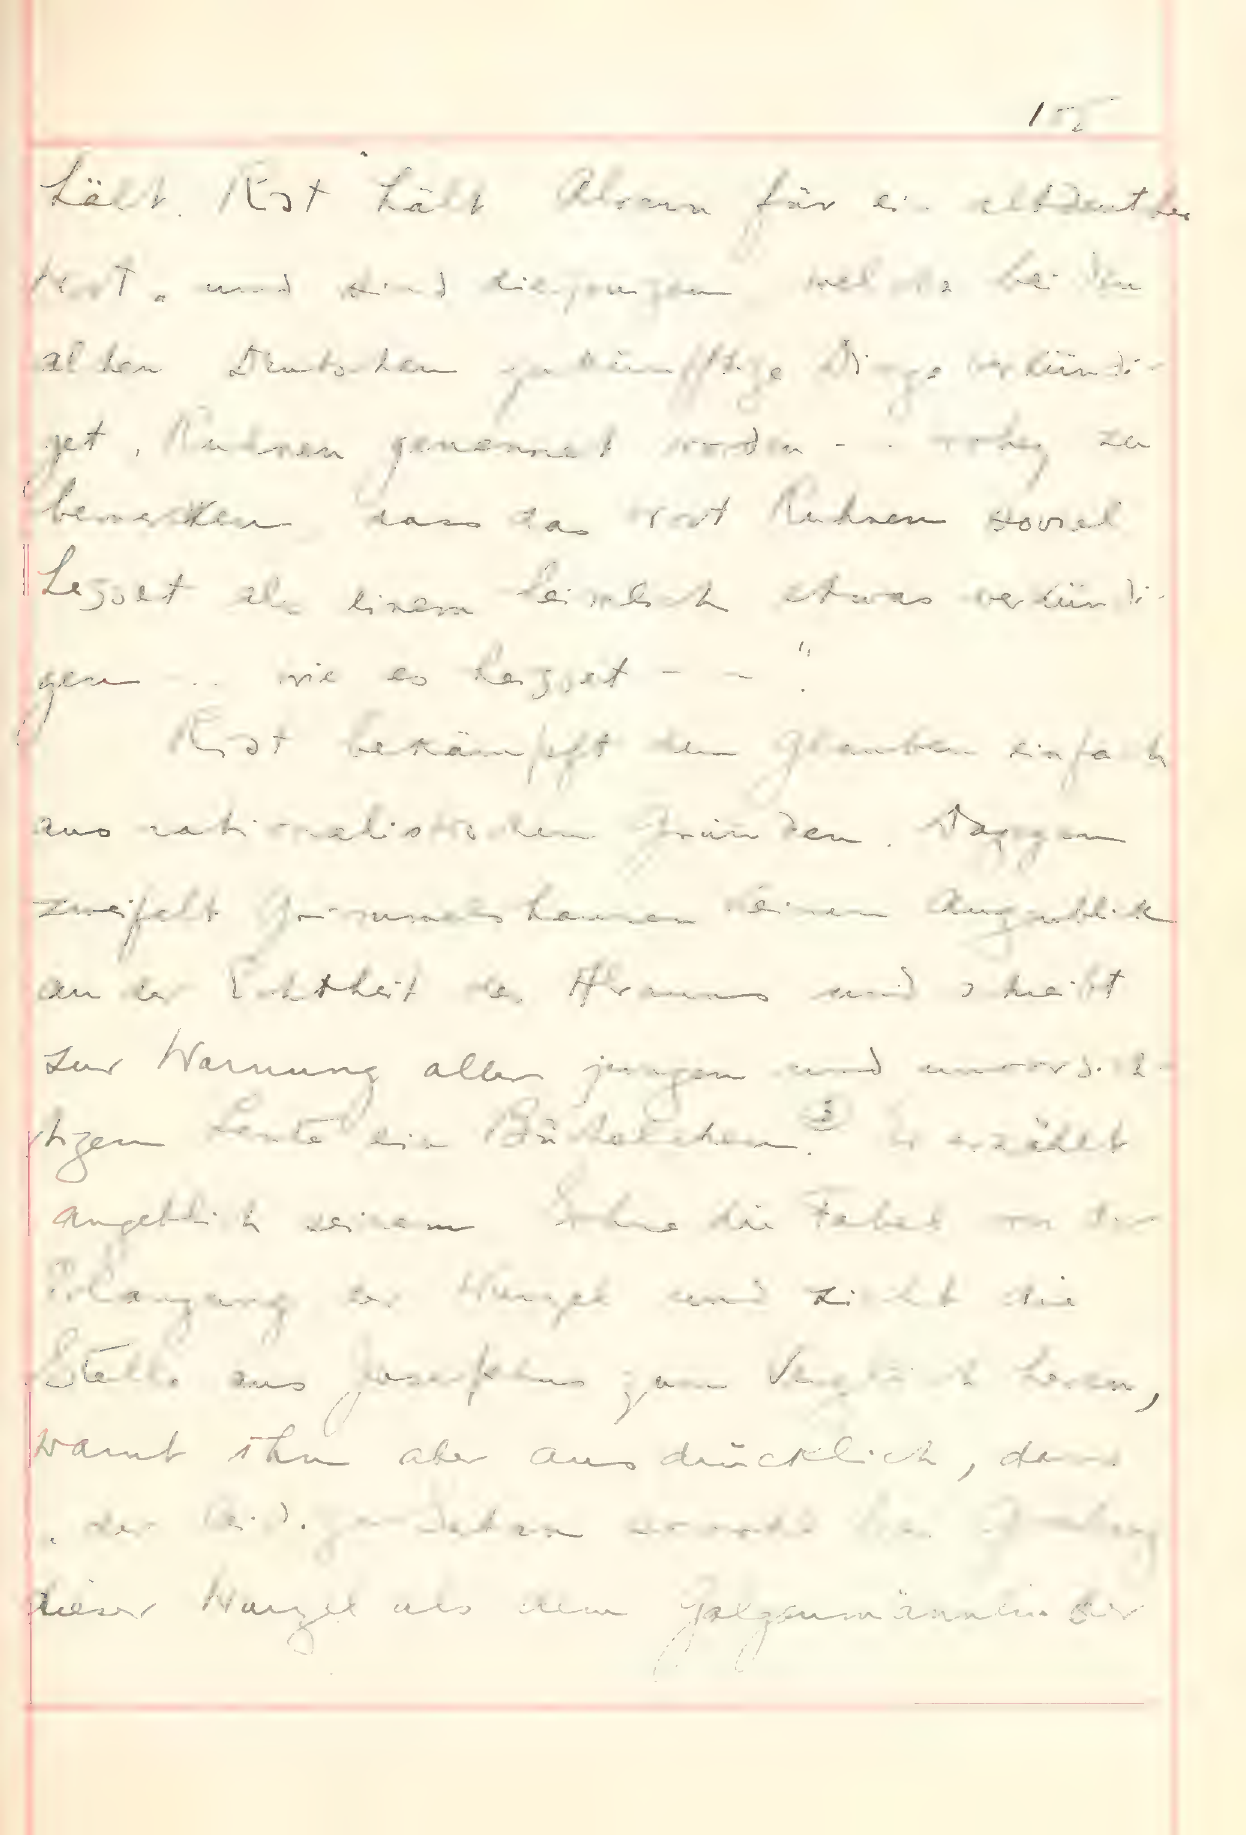 hält. Rist hält Alraun für ein altdeutsches
Wort „ und sind diejenigen welche bei den
alten Deutschen zukünfftige Dinge verkündi-
get, Ruhnen genennet worden - - zu
bemerken dass das Wort Ruhnen soviel
heisset als einem heimlich etwas verkündi-
gen - - wie es heisset - - ".
Rist bekämpft den Glauben einfach
aus rationalistischen Gründen. Dagegen
zweifelt Grimmelshausen keinen Augenblick
an der Echtheit des Alrauns und schreibt
zur Warnung aller jungen und unvorsich-
tigen Leute ein Büchelchen. Er erzählt
angeblich seinem Sohne die Fabel von der
Erlangung der Wurzel und zieht die
Stelle aus Josephus zum Vergleich heran,
warnt ihn aber ausdrücklich, dass
„ der leidige Satan sowohl bei
dieser Wurzel als dem Galgenmännlein der